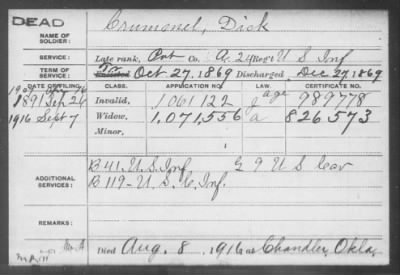 DEAD
NAME OF SOLDIER: Crumonel, Dick
SERVICE: Late rank, Pvt Co. A, 24 Reg't U S Inf
TERM OF SERVICE: Enlisted Oct 27, 1869 Discharged Dec 27, 1869
DATE OF FILING. CLASS. APPLICATION NO. LAW. CERTIFICATE NO.
1891 Sep 26 Invalid, 1061122 J age 989778
1916 Sept 7 Widow, 1,071,556 a 826573
Minor,
ADDITIONAL SERVICES: B 41. U.S. Inf G 9 U S Cav
B 119 - U.S.C. Inf.
REMARKS:
Died Aug. 8, 1916 at Chandler, Okla,